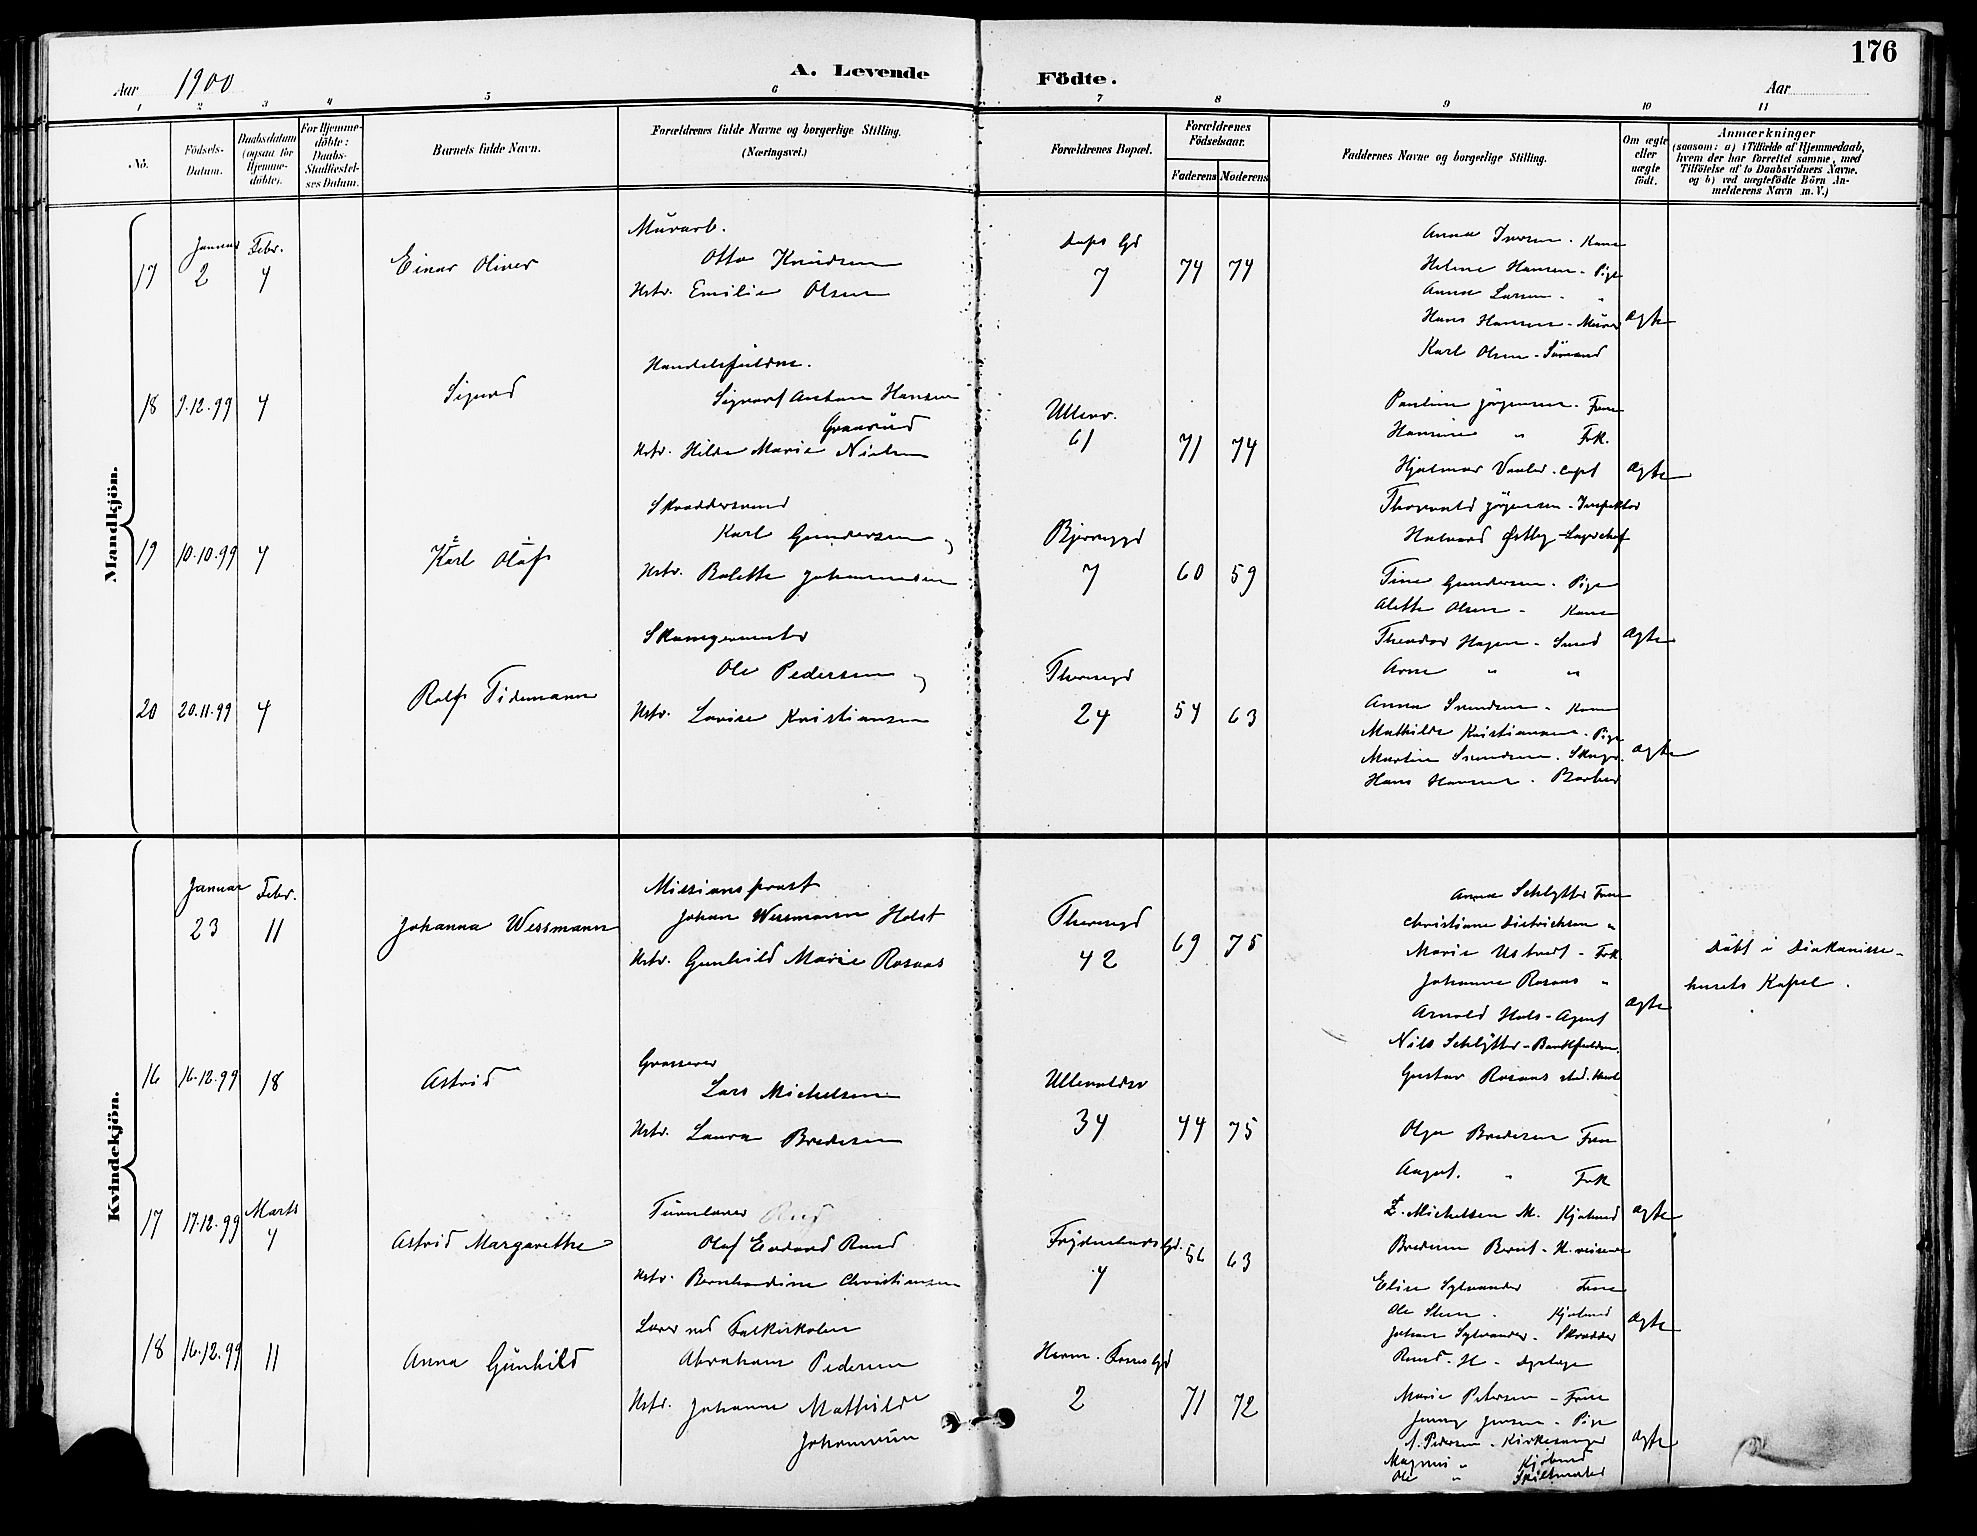 176
Aar 1900
A. Levende Födte.
Aar
1 2 3 4 5 6 7 8 9 10 11
No.
Födsels-Datum.
Daabsdatum (ogsaa for Hjemmedöbte).
For Hjemmedöbte: Daabs-Stadfæstelses Datum.
Barnets fulde Navn.
Forældrenes fulde Navne og borgerlige Stilling. (Næringsvei.)
Forældrenes Bopæl.
Forældrenes Födselsaar.
Faderens Moderens
Faddernes Navne og borgerlige Stilling.
Om ægte eller uægte födt.
Anmærkninger
(saasom: a) i Tilfælde af Hjemmedaab,
hvem der har forrettet samme, med
Tilföielse af to Daabsvidners Navne.
og b) ved uægtefödte Börn An-
melderens Navn m. V.)
Mandkjön.
17
Januar 2
Febr. 4
Einar Oliver
Murarb.
Otto Knudsen
Hstr. Emilie Olsen
7
74 74
Anna Iversen - Kone
Helene Hansen - Pige
Anna Larsen - "
Hans Hansen - Murer
Karl Olsen - Sömand
ægte
18
9.12.99
4
Sigurd
Sigvart Anton Hansen
Graarud
Hstr. Hilda Marie Nielsen
Ullevv.
61
71 74
Pauline Jörgensen - Frue
" Frk.
Hjalmar Vaaler - Capt
Thorvald Jörgensen - Inspektör
Halvard Østby - Lagerchef
ægte
19
10.10.99
4
Karl Olaf
Skræddersvend
Karl Gundersen og
Hstr. Bolette Johannesen
Bjerregd
7
60 59
Tina Gundersen - Pige
Alette Olsen - Kone
Theodor Hagen - Smed
Arne " "
ægte
20
20.11.99
4
Rolf Tidemann
Ole Pedersen og
Hstr. Lovise Kristiansen
Theresegd
24
54 63
Anna Svendsen - Kone
Mathilde Kristiansen - Pige
Martin Svendsen - Skogr.
Hans Hansen - Barber
ægte
Kvindekjön.
Januar 23
Febr. 11
Johanna Wessmann
Missionsprest
Johan Wessmann Holst
Hstr. Gunhild Marie Rosaas
Theresegd
42
69 75
Anna Schlytter Frue
Christiane Dietrichson "
Marie Ustvedt - Frk.
Johanne Rosaas "
Arnold Hols - Agent
Nils Schlytter - Bankfuldm.
Gustav Rosaas stud.
ægte
Döbt i Diakonisse-
husets Kapel.
16
16.12.99
18
Astrid
Grosserer
Lars Michelsen
Hstr. Laura Bredesen
Ullevoldsv
34
44 75
Olga Bredesen Frue
August. " Frk
L. Michelsen M. Kjøbmd
Bredesen Bernt - H.reisende
ægte
17
17.12.99
Marts 4
Astrid Margarethe
Turnlærer
Olaf Edvard Ruud
Hstr. Bernhardine Christiansen
Frydenlundsgd.
4
56 63
Elise Sylvander Frue
Ole Steen - Kjöbmd
Johan Sylvander - Skrædder
Ruud - H -
ægte
18
16.12.99
11
Anna Gunhild
Lærer ved Folkeskolen
Abraham Pedersen
Hstr. Johanne Mathilde
Johannesen
Herm. Fossgd
2
71 72
Marie Petersen - Frue
Jenny Jensen - Pige
A. Pedersen - Kirkesanger
Magnus " Kjöbmd
Ole " Skiltmaler
ægte